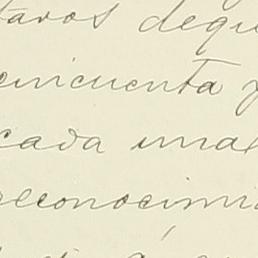 tavos dequ
cincuenta y
cada una
reconocimi